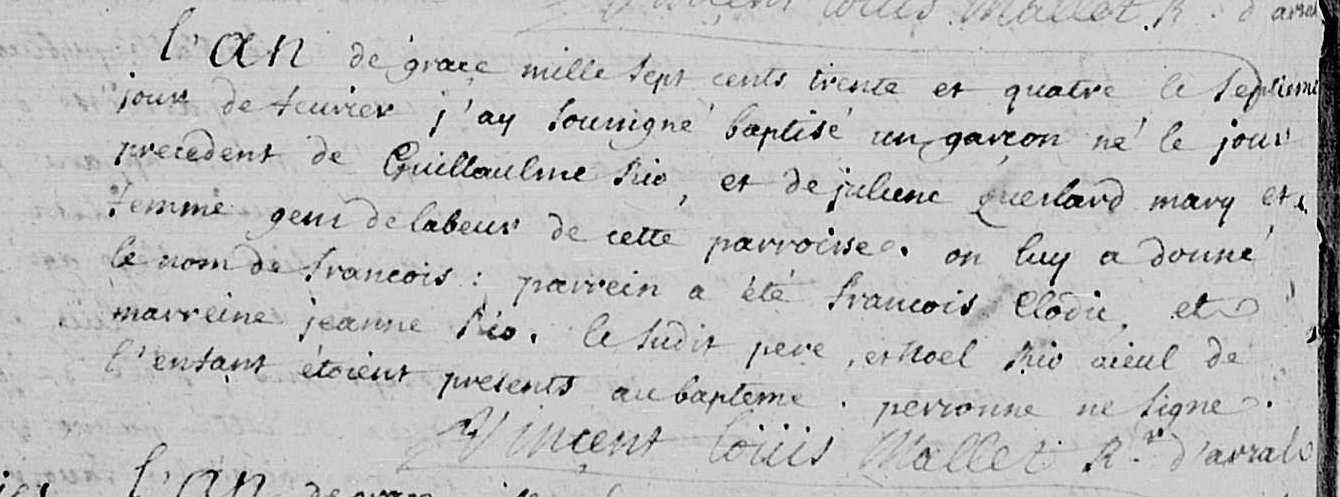 Vincent Louis Mallet R. d'arra
L'an de grace mille sept cents trente et quatre le septieme
jour de feuvrier j'ay soussigné baptisé un garcon né le jour
precedent de Guillaulme Rio, et de juliene Querlard mary et
femme gens de labeur de cette parroisse. on luy a donné
le nom de francois : parrein a été francois Clodic, et
marreine jeanne Rio. le sudit pere, et Noel Rio aieul de
l'enfant étoient presents au bapteme. personne ne signe.
Vincent Loüis Mallet R.r d'arral
L'an de grace